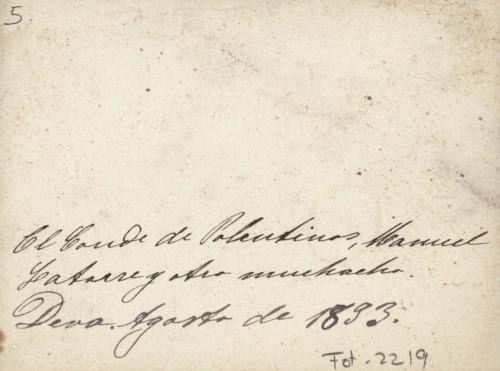 5
El Conde de Polentinos, Manuel
Latorre y otro muchacho.
Deva. Agosto de 1893.
Fot. - 2219